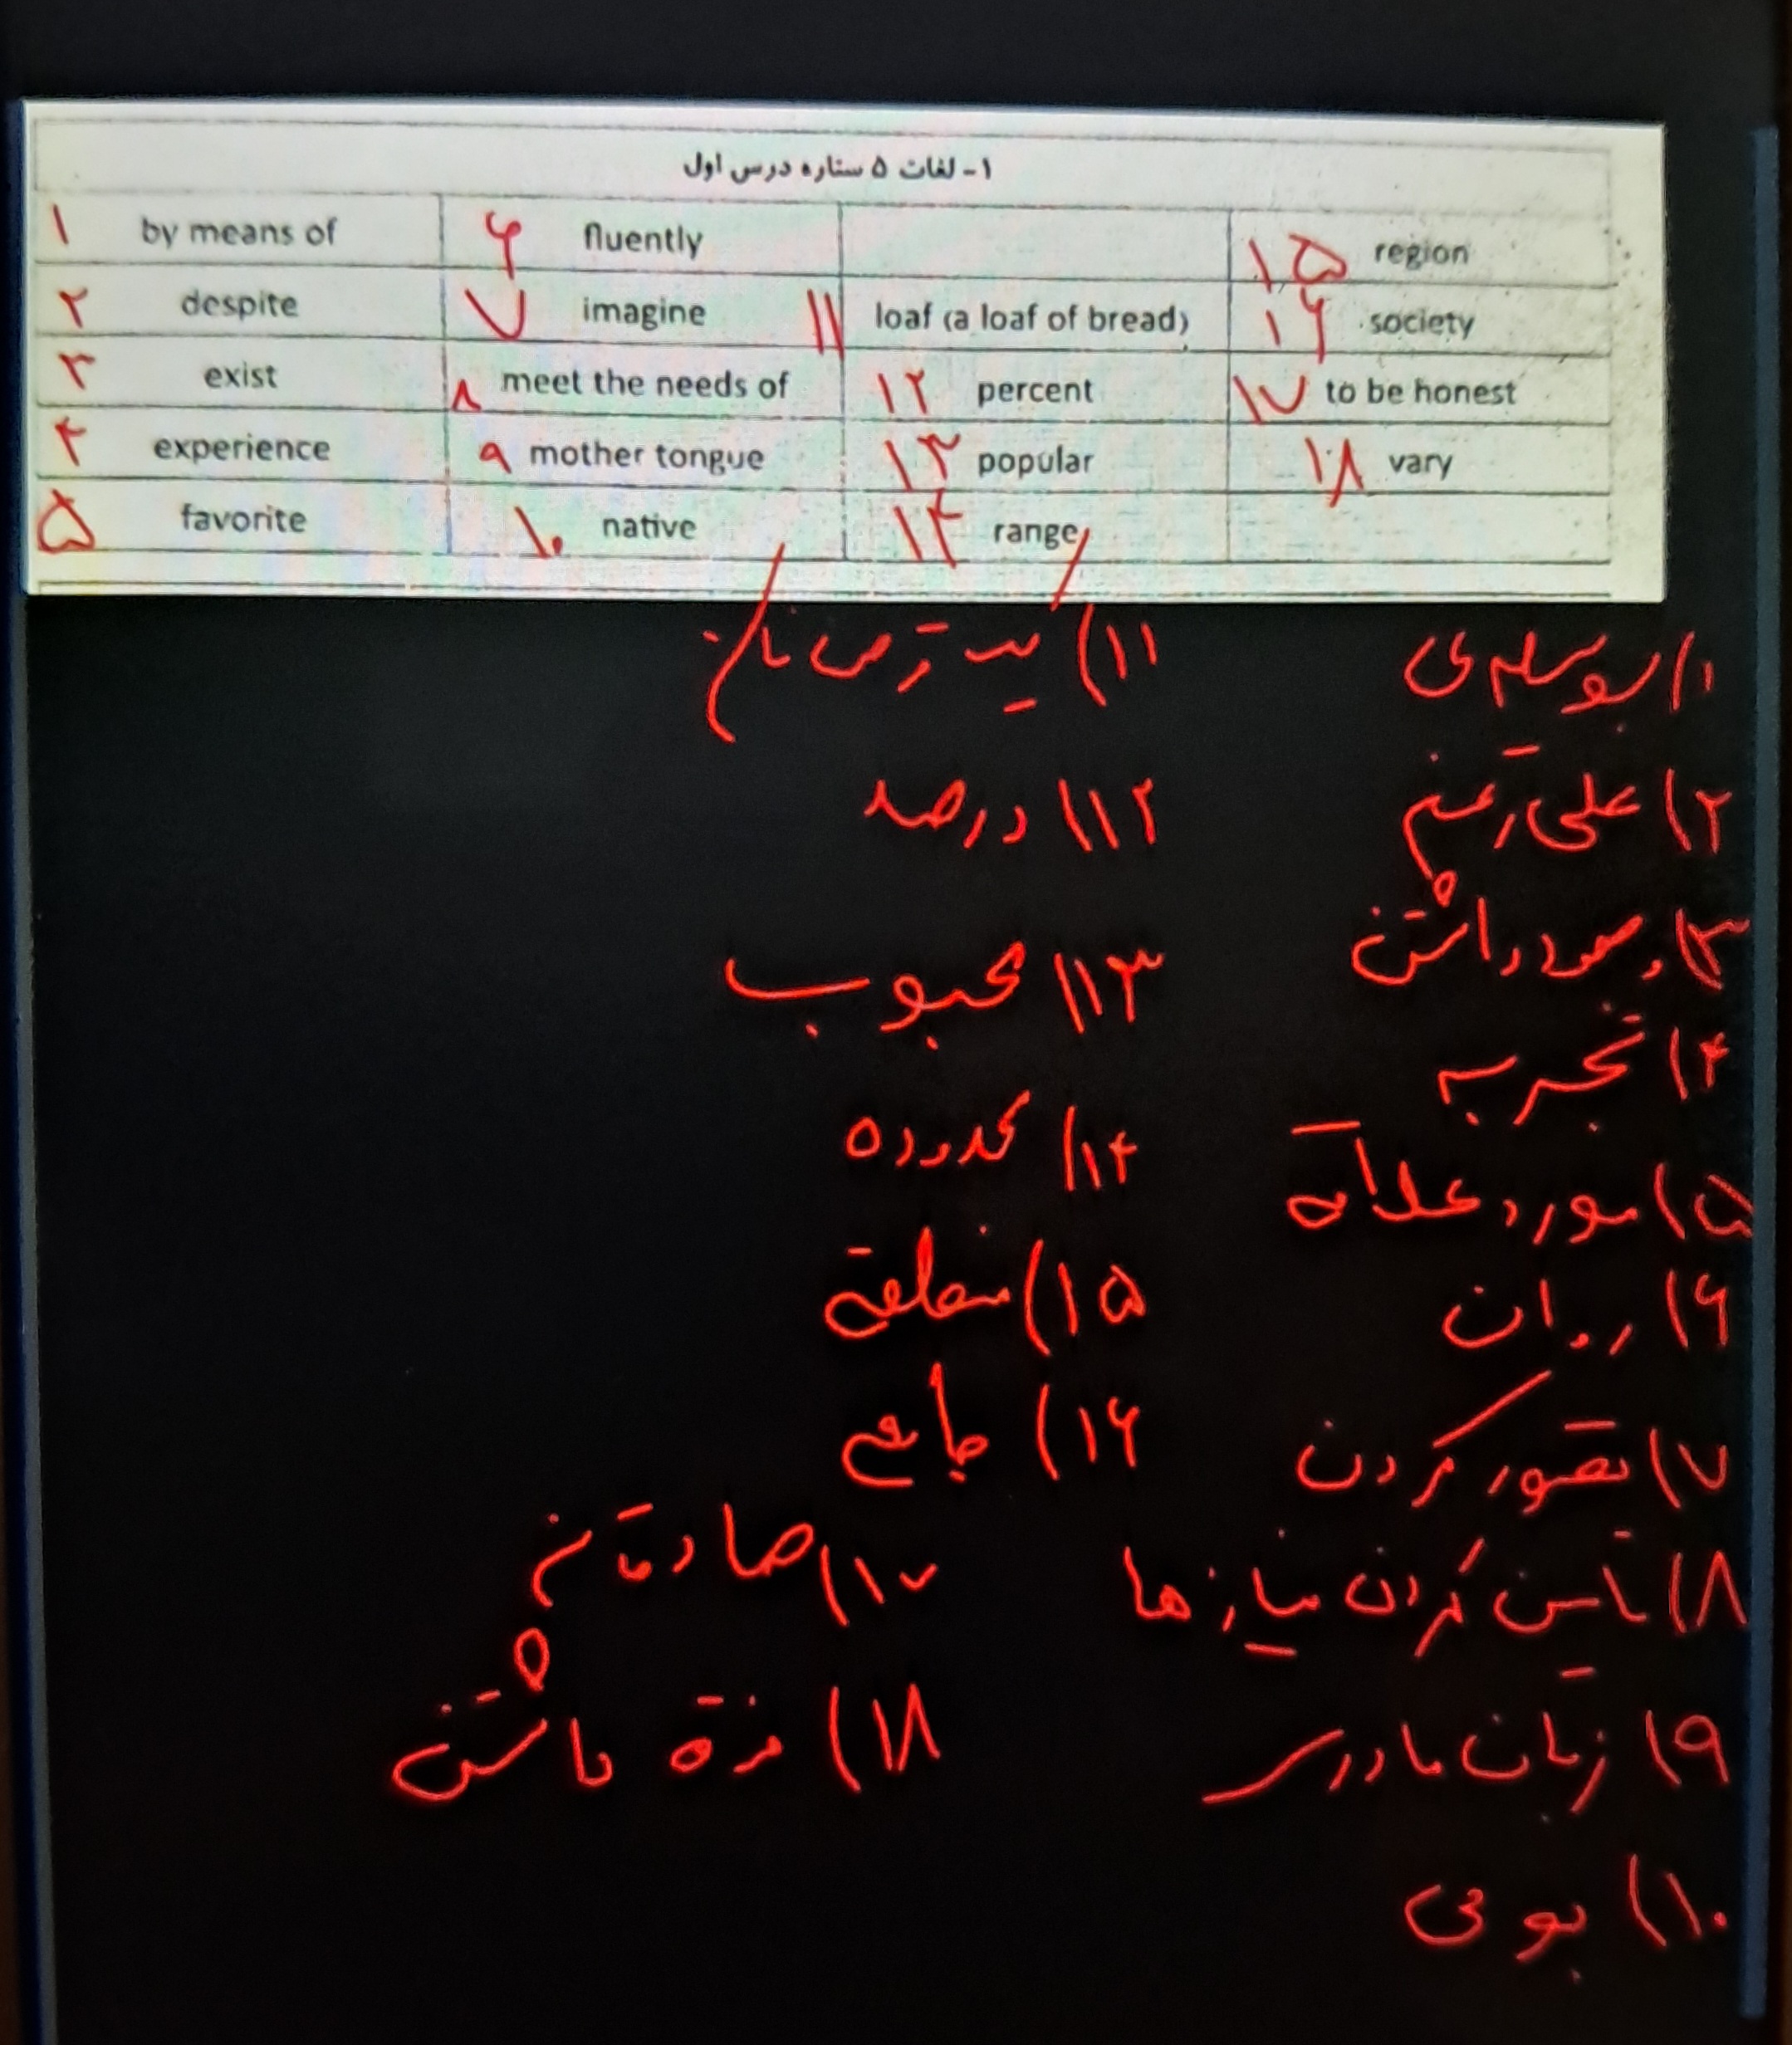 ۱- لغات ۵ ستاره درس اول
۱ by means of ۶ fluently ۱۵ region
۲ despite ۷ imagine ۱۱ loaf (a loaf of bread) ۱۶ society
۳ exist ۸ meet the needs of ۱۲ percent ۱۷ to be honest
۴ experience ۹ mother tongue ۱۳ popular ۱۸ vary
۵ favorite ۱۰ native ۱۴ range
۱) بوسیله ی
۲) علی رغم
۳) وجود داشتن
۴) تجربه
۵) مورد علاقه
۶) روان
۷) تصور کردن
۸) تامین کردن نیازها
۹) زبان مادری
۱۰) بومی
۱۱) یک قرص نان
۱۲) درصد
۱۳) محبوب
۱۴) محدوده
۱۵) منطقه
۱۶) جامعه
۱۷) صادقانه
۱۸) فرق داشتن